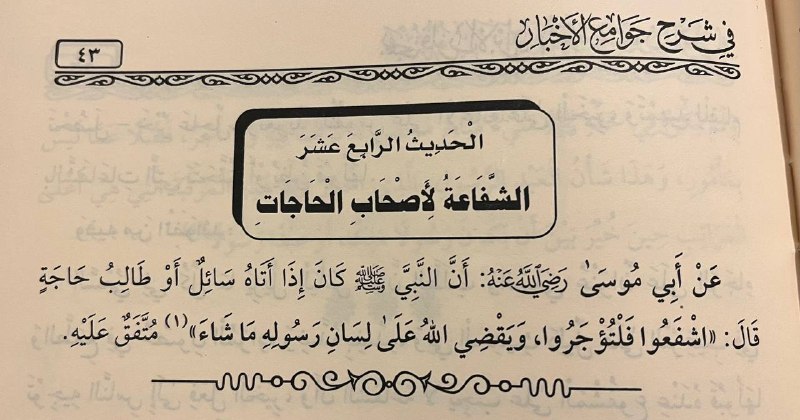 في شرح جوامع الأخبار
٤٣
الْحَدِيثُ الرَّابِعَ عَشَرَ
الشَّفَاعَةُ لِأَصْحَابِ الْحَاجَاتِ
عَنْ أَبِي مُوسَىٰ رَضِيَ اللَّهُ عَنْهُ: أَنَّ النَّبِيَّ ﷺ كَانَ إِذَا أَتَاهُ سَائِلٌ أَوْ طَالِبُ حَاجَةٍ
قَالَ: «اشْفَعُوا فَلْتُؤْجَرُوا، وَيَقْضِي اللهُ عَلَىٰ لِسَانِ رَسُولِهِ مَا شَاءَ»(١) مُتَّفَقٌ عَلَيْهِ.